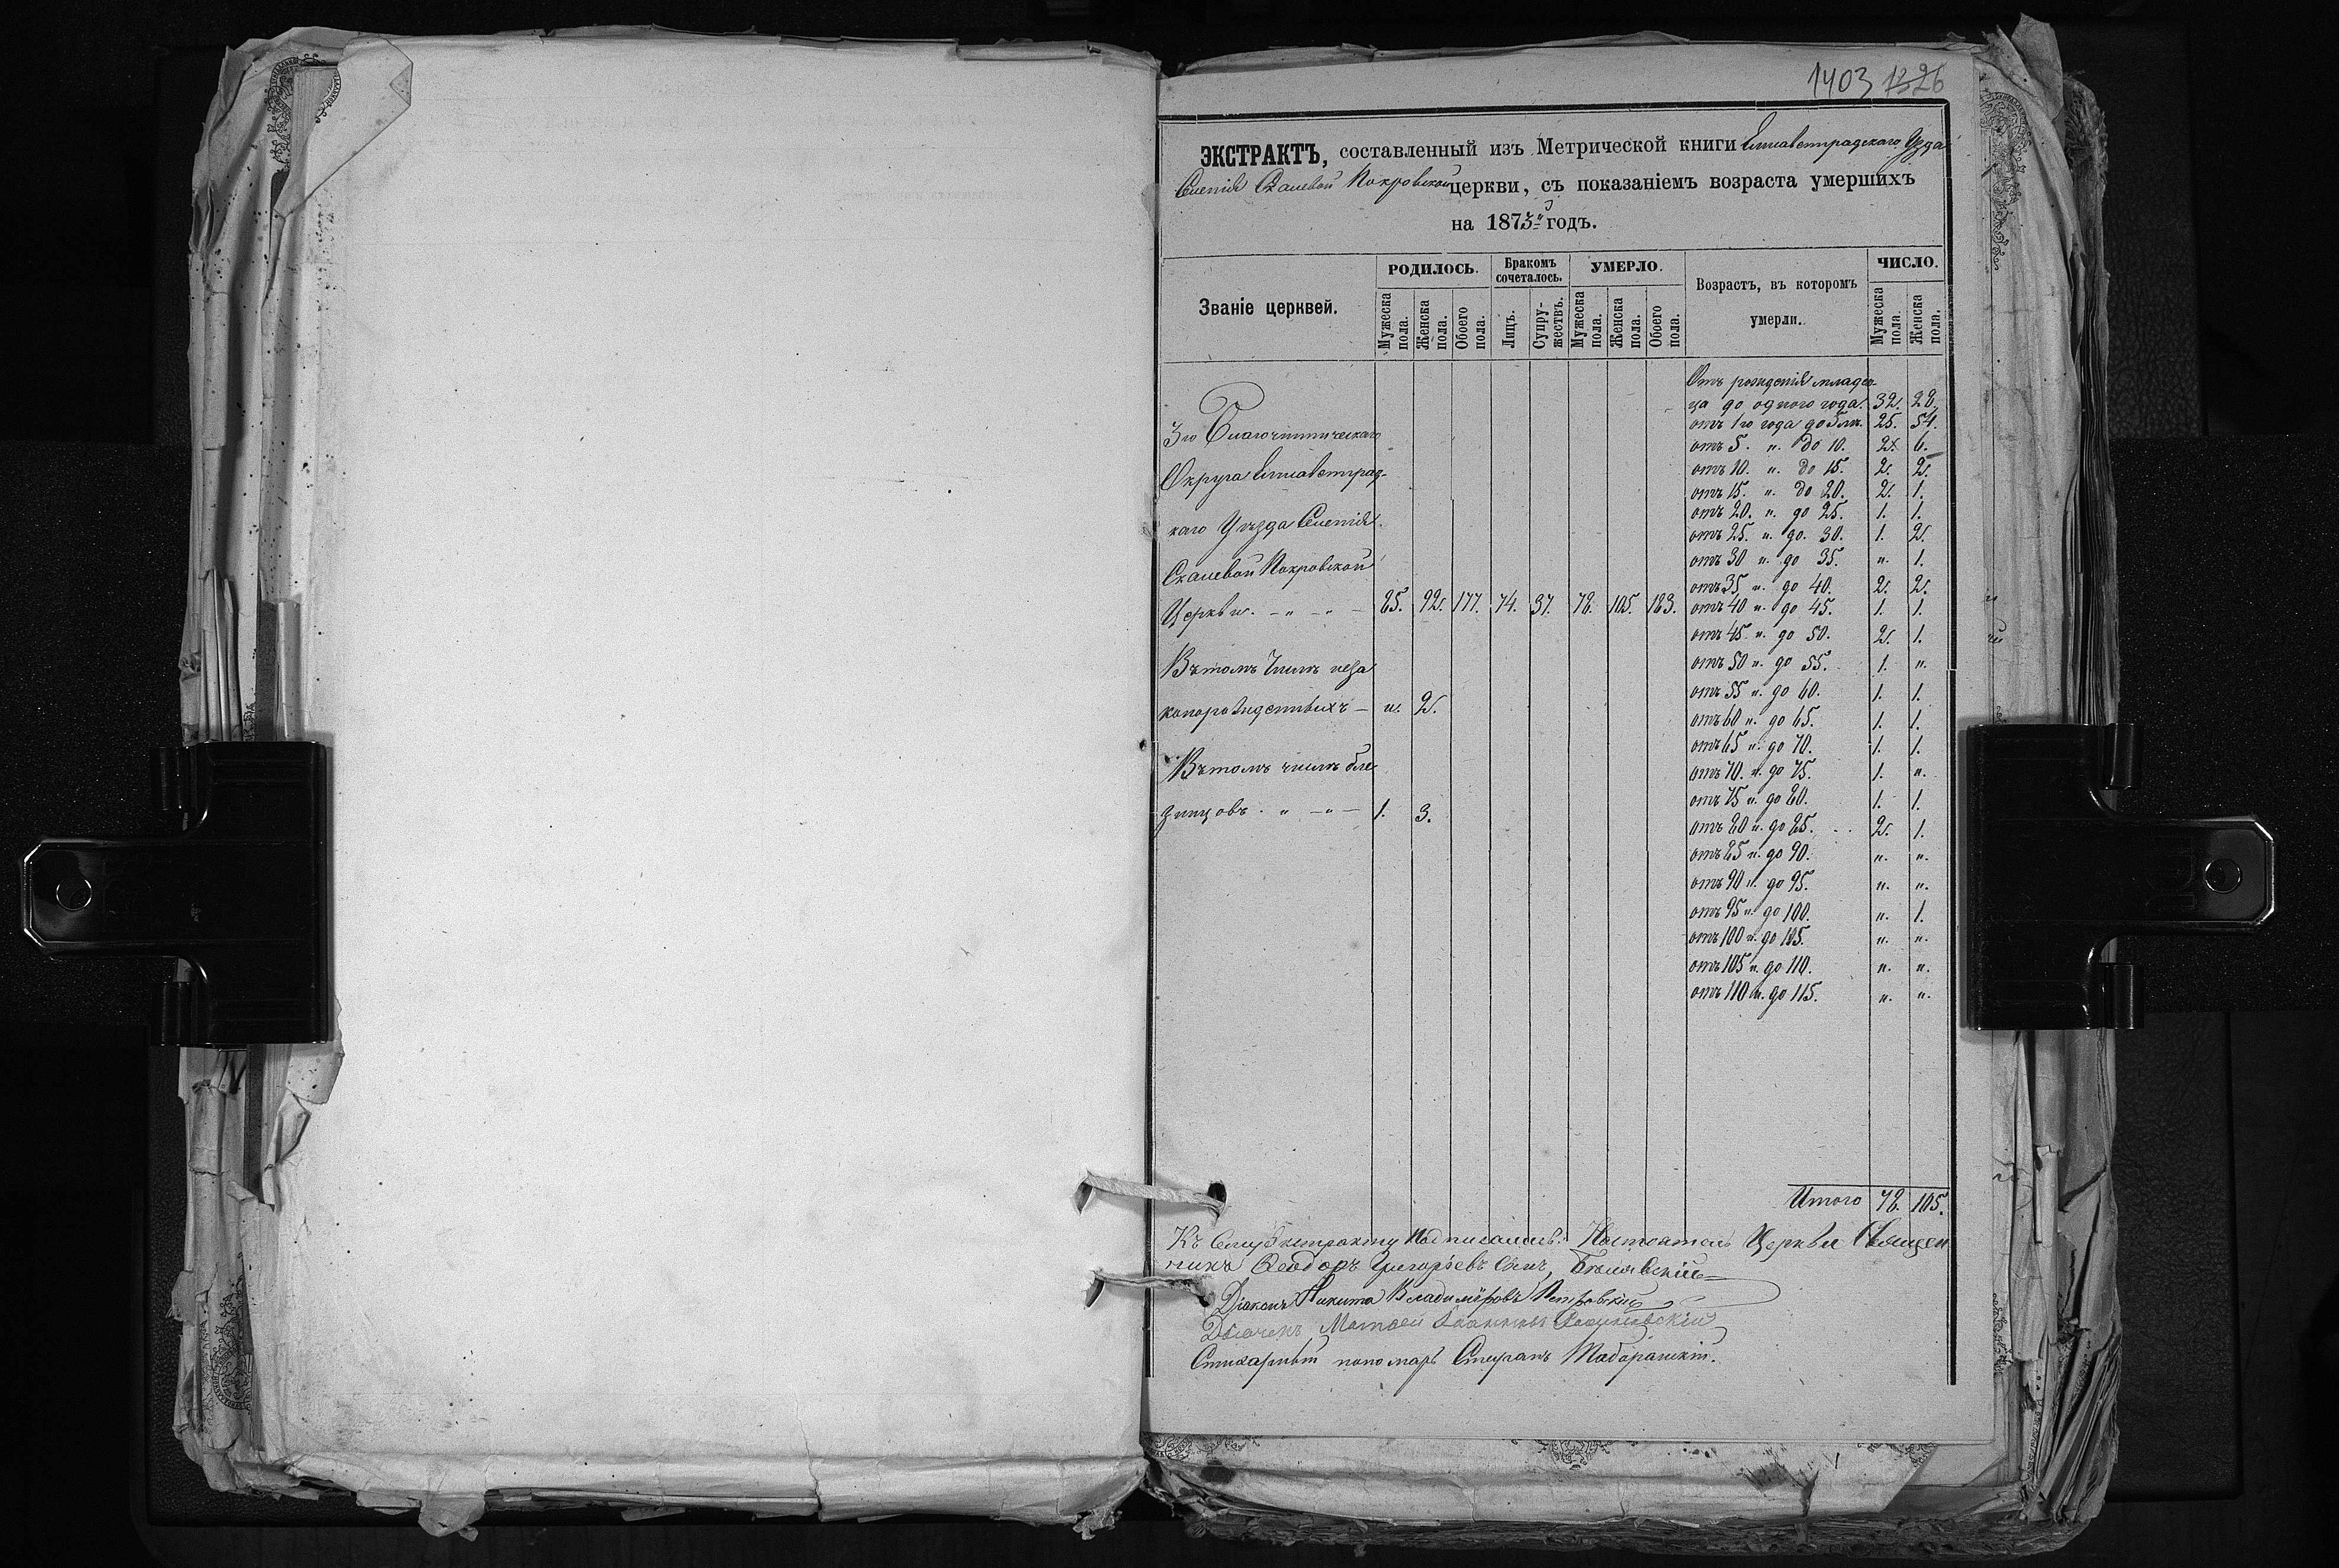 1403 1326
ЭКСТРАКТЪ, составленный изъ Метрической книги Елисаветградскаго Уѣзда
Селенія Скалевой Покровской церкви, съ показаніемъ возраста умершихъ
на 1873й годъ.
Званіе церквей. РОДИЛОСЬ. Бракомъ сочеталось. УМЕРЛО. Возрастъ, въ которомъ умерли. ЧИСЛО.
Мужеска пола. Женска пола. Обоего пола. Лицъ. Супружествъ. Мужеска пола. Женска пола. Обоего пола. Мужеска пола. Женска пола.
3го Благочинническаго
Округа Елисаветград-
скаго Уѣзда Селенія
Скалевой Покровской
Церкви. - „ - „ - 85. 92. 177. 74. 37. 78. 105. 183.
Въ томъ Числѣ неза
коннорожденныхъ - „. 2.
Въ томъ числѣ бли
знецовъ. „ - „ - 1. 3.
Отъ рожденія младен-
ца до одного года. 32. 28.
отъ 1го года до 5 лѣт. 25. 54.
отъ 5. „. до 10. 2. 6.
отъ 10. „. до 15. 2. 2.
отъ 15. „. до 20. 2. 1.
отъ 20. „. до 25. 1. 1.
отъ 25. „. до. 30. 1. 2.
отъ 30 „. до 35. „. 1.
отъ 35 „. до 40. 2. 2.
отъ 40 „. до 45. 1. 1.
отъ 45 „. до 50. 2. 1.
отъ 50 „. до 55. 1. „.
отъ 55 „. до 60. 1. 1.
отъ 60 „. до 65. 1. 1.
отъ 65 „. до 70. 1. 1.
отъ 70. „. до 75. 1. „.
отъ 75 „. до 80. 1. 1.
отъ 80 „. до 85. 2. 1.
отъ 85 „. до 90. „. „.
отъ 90 „. до 95. „. „.
отъ 95 „. до 100. „. 1.
отъ 100 „. до 105. „. „.
отъ 105 „. до 110. „. „.
отъ 110 „. до 115. „. „.
Итого 78. 105.
Къ Сему Экстракту Подписались: Настоятель Церкви Священ
никъ Ѳеодоръ Григорьевъ Сынъ, Бѣлявскій
Діаконъ Никита Владиміровъ Петровскій
Дьячекъ Матѳей Іоанновъ
Стихарный пономарь Стефанъ